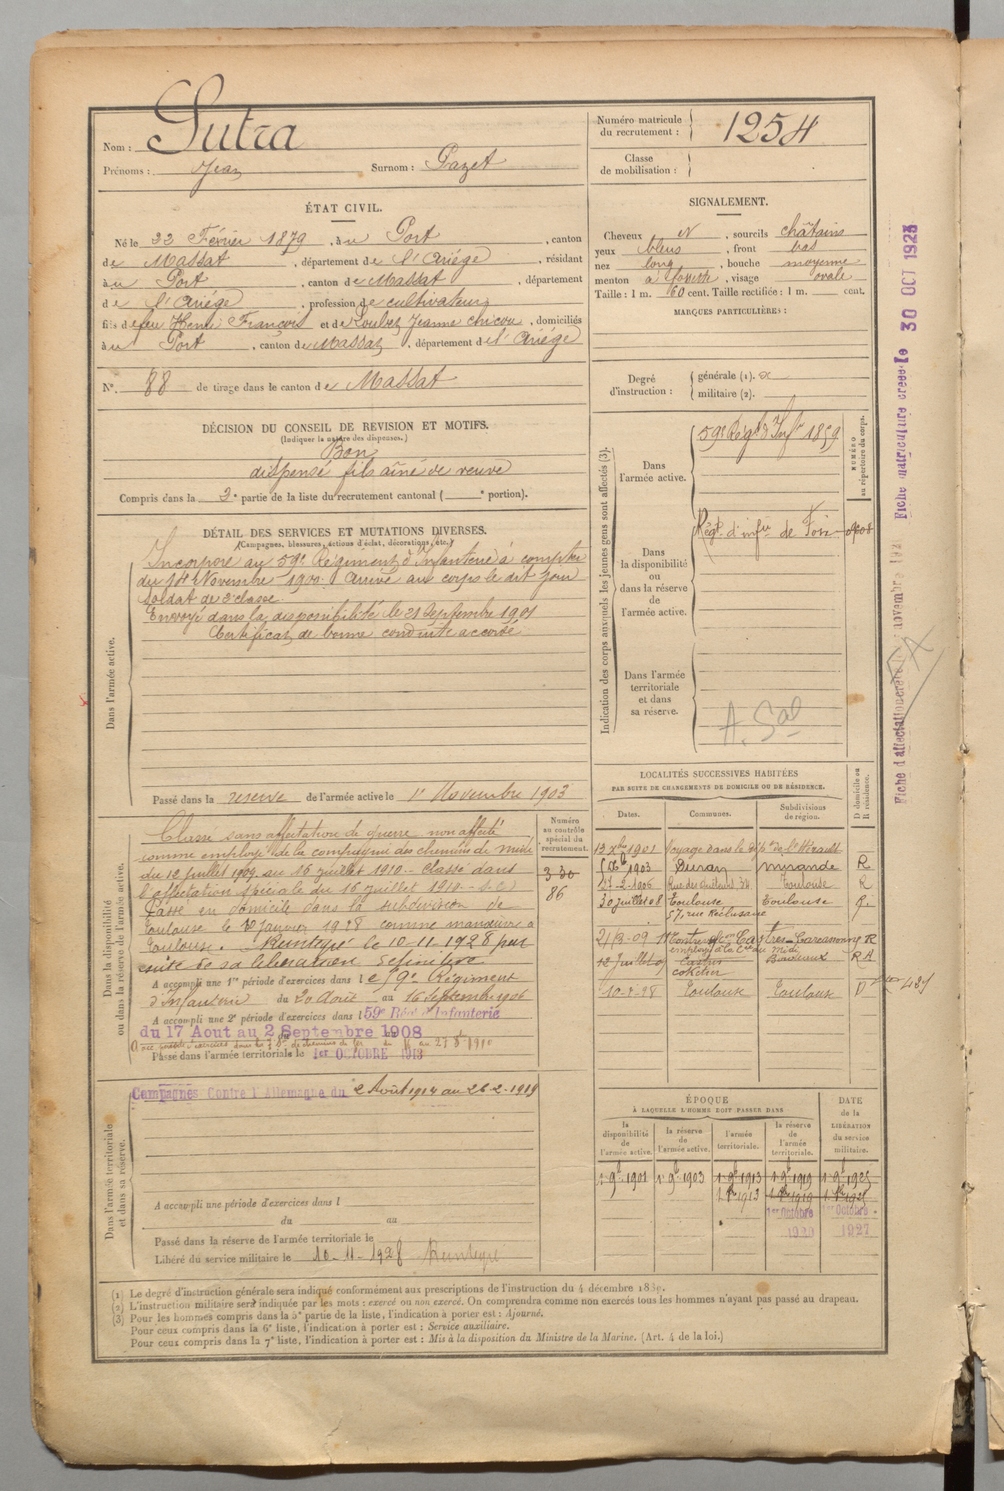 Nom : Sutra
Prénoms : Jean Surnom : Pazet
Numéro matricule du recrutement : 1254
Classe de mobilisation :
ÉTAT CIVIL.
Né le 22 Février 1879, à u Port, canton
de Massat, département de l'Ariège, résidant
à u Port, canton de Massat, département
de l'Ariège, profession de cultivateur
fils de feu Henri François et de Loubet Jeanne , domiciliés
à u Port, canton de Massat, département de l'Ariège
N°. 88 de tirage dans le canton de Massat
SIGNALEMENT.
Cheveux et , sourcils châtains
yeux bleus , front bas
nez long , bouche moyenne
menton à fossette , visage ovale
Taille : 1 m. 60 cent. Taille rectifiée : 1 m. cent.
MARQUES PARTICULIÈRES :
Degré d'instruction : générale (1).
militaire (2).
DÉCISION DU CONSEIL DE REVISION ET MOTIFS.
(Indiquer la nature des dispenses.)
Bon
dispensé fils aîné de veuve
Compris dans la 2e partie de la liste du recrutement cantonal ( e portion).
DÉTAIL DES SERVICES ET MUTATIONS DIVERSES.
(Campagnes, blessures, actions d'éclat, décorations, etc.)
Dans l'armée active.
Incorporé au 59e Régiment d'Infanterie à compter
du Novembre 1900. Arrivé au corps le dit jour
Soldat de 2e classe.
Envoyé dans la disponibilité le 21 Septembre 1901
Certificat de bonne conduite accordé
Passé dans la réserve de l'armée active le 1er Novembre 1903
Indication des corps auxquels les jeunes gens sont affectés (3).
Dans l'armée active.
59e Régt d'Infie 1859
NUMÉRO au répertoire du corps.
Dans la disponibilité ou dans la réserve de l'armée active.
Régt d'infie de Foix
Dans l'armée territoriale et dans sa réserve.
Dans la disponibilité ou dans la réserve de l'armée active.
Classé sans affectation de guerre non affecté
comme employé de la compagnie des chemins de midi
du 12 juillet 1909 au 16 juillet 1910. Classé dans
l'affectation spéciale du 16 juillet 1910
Passé en domicile dans la subdivision de
Toulouse le Janvier 1928 comme manœuvre à
Toulouse. Réintégré le 10-11-1928 par
suite de sa libération définitive
A accompli une 1re période d'exercices dans l e 59e Régiment
d'Infanterie du 20 Août au 16 Septembre 1906
A accompli une 2e période d'exercices dans l 59e Régt d'Infanterie
du 17 Aout au 2 Septembre 1908
Passé dans l'armée territoriale le 1er OCTOBRE 1913
Numéro au contrôle spécial du recrutement.
86
LOCALITÉS SUCCESSIVES HABITÉES
PAR SUITE DE CHANGEMENTS DE DOMICILE OU DE RÉSIDENCE.
Dates. Communes. Subdivisions de région. D domicile ou R résidence.
13 xbre 1901 Voyage dans le dépt de l'Hérault
1903 Duran Mirande R
27-2-1906 Toulouse R
30 juillet 08 Toulouse Toulouse R.
57, rue Réclusane
Carcassonne R
employé à la Cie du Midi
Bordeaux
Toulouse Toulouse D
Dans l'armée territoriale et dans sa réserve.
Campagnes Contre l'Allemagne du 2 Août 1914 au 26-2-1919
A accompli une période d'exercices dans l
du au
Passé dans la réserve de l'armée territoriale le
Libéré du service militaire le 10-11-1928 Réintégré
ÉPOQUE
À LAQUELLE L'HOMME DOIT PASSER DANS
DATE de la LIBÉRATION du service militaire.
la disponibilité de l'armée active. la réserve de l'armée active. l'armée territoriale. la réserve de l'armée territoriale.
1er 9bre 1901 1er 9bre 1903 1er 9bre 1913 1er 9bre 1919 1er 9bre 1925
1er Octobre 1920 1er Octobre 1927
(1) Le degré d'instruction générale sera indiqué conformément aux prescriptions de l'instruction du 4 décembre 1889.
(2) L'instruction militaire sera indiquée par les mots : exercé ou non exercé. On comprendra comme non exercés tous les hommes n'ayant pas passé au drapeau.
(3) Pour les hommes compris dans la 5e partie de la liste, l'indication à porter est : Ajourné.
Pour ceux compris dans la 6e liste, l'indication à porter est : Service auxiliaire.
Pour ceux compris dans la 7e liste, l'indication à porter est : Mis à la disposition du Ministre de la Marine. (Art. 4 de la loi.)
Fiche matriculaire créée le 30 OCT 1923